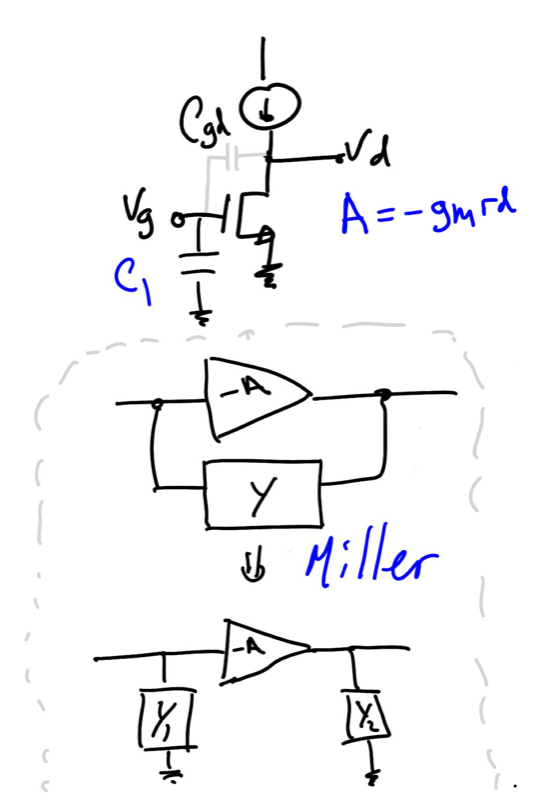 Cgd
Vd
Vg
A = -gmrd
C1
-A
Y
Miller
-A
Y1
Y2